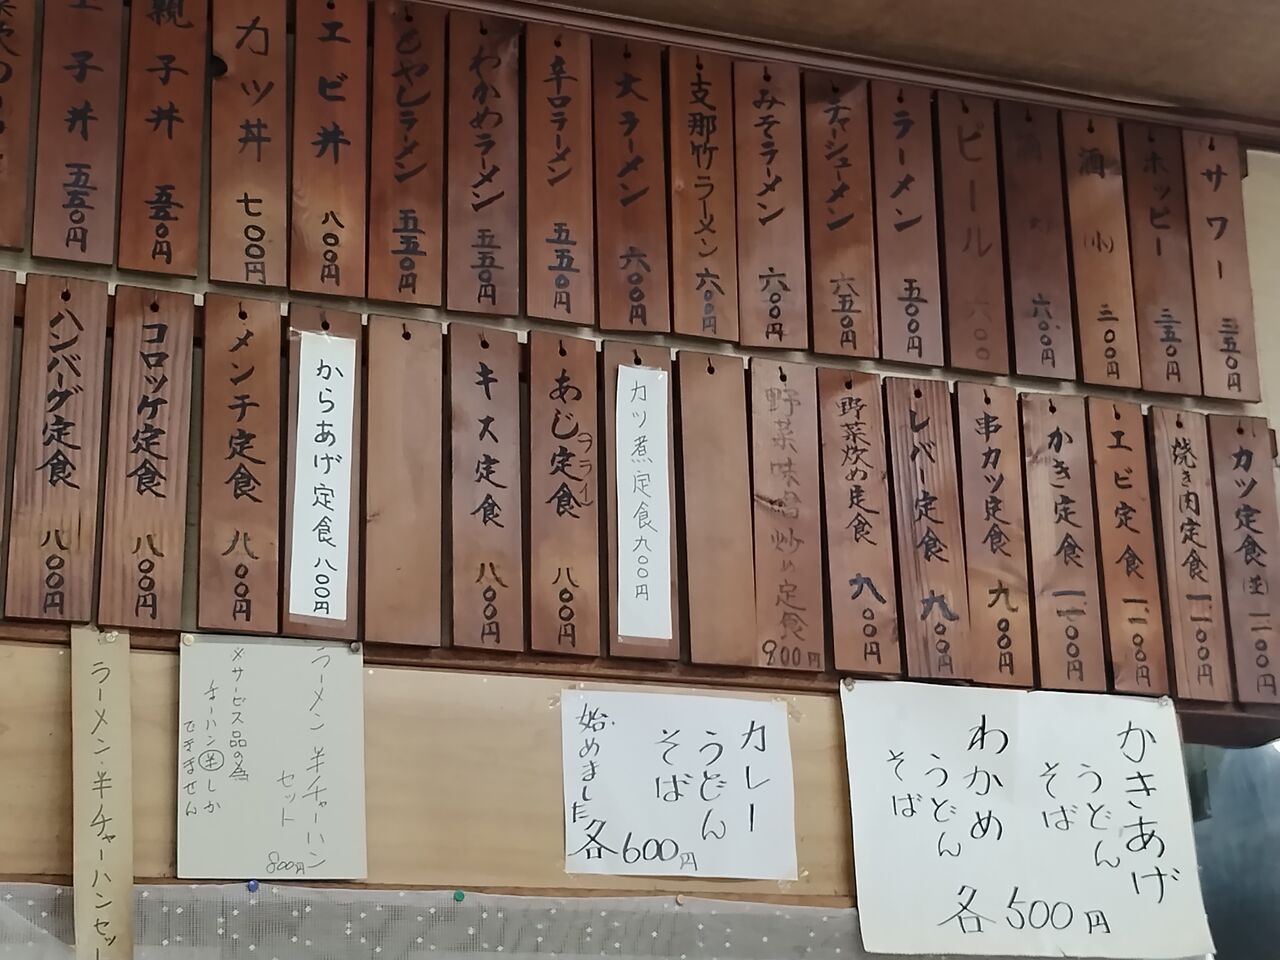 サワー 三五〇円
ホッピー 三五〇円
酒(小) 三〇〇円
酒 六〇〇円
ビール 六〇〇
ラーメン 五〇〇円
チャーシューメン 六五〇円
みそラーメン 六〇〇円
支那竹ラーメン 六〇〇円
大ラーメン 六〇〇円
辛口ラーメン 五五〇円
わかめラーメン 五五〇円
もやしラーメン 五五〇円
エビ丼 八〇〇円
カツ丼 七〇〇円
親子丼 五五〇円
玉子丼 五五〇円
カツ定食(並) 一一〇〇円
焼き肉定食 一一〇〇円
エビ定食 一一〇〇円
かき定食 一一〇〇円
串カツ定食 九〇〇円
レバー定食 九〇〇円
野菜炒め定食 九〇〇円
野菜味噌炒め定食 900円
カツ煮定食 九〇〇円
あじ(フライ)定食 八〇〇円
キス定食 八〇〇円
からあげ定食 八〇〇円
メンチ定食 八〇〇円
コロッケ定食 八〇〇円
ハンバーグ定食 八〇〇円
かきあげ
うどん
そば
わかめ
うどん
そば
各500円
カレー
うどん
そば
始めました
各600円
ラーメン 半チャーハン
セット
800円
※サービス品の為
チャーハン半しか
できません
ラーメン・半チャーハンセッ